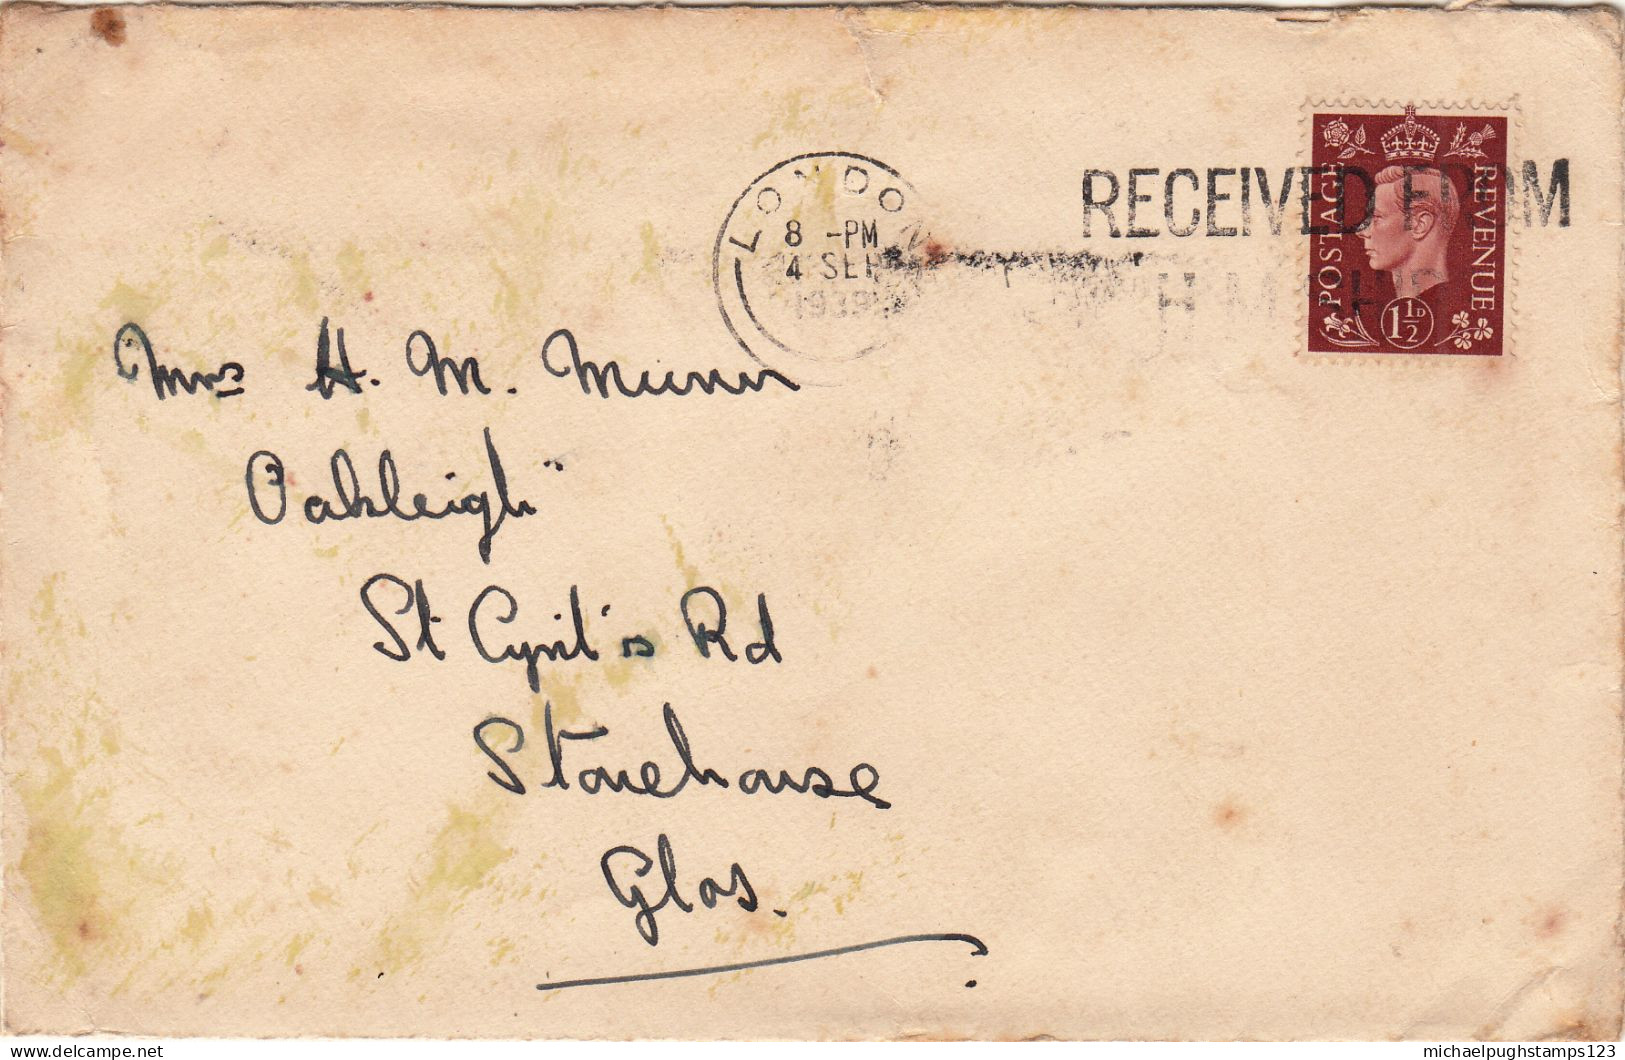 LONDO
8 -PM
4 SEP
1939
RECEIVED FROM
H.M. SHIPS
POSTAGE
REVENUE
1½D
Mrs H. M. Munn
Oakleigh
St Cyril's Rd
Stonehouse
Glos.
michaelpughstamps123